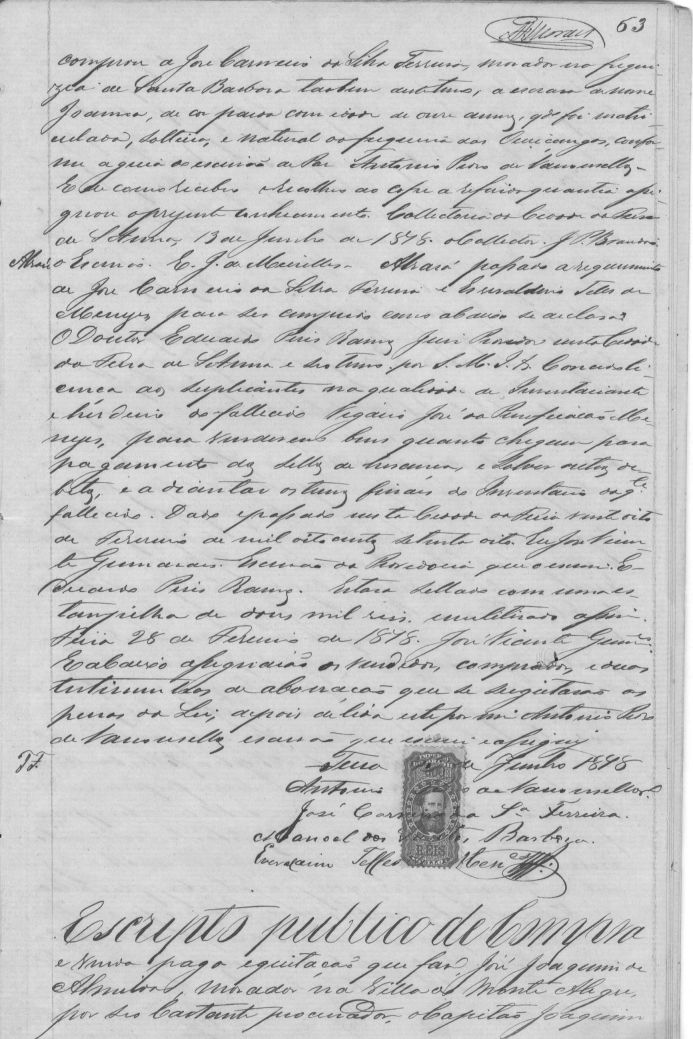 63
comprou a José Carneiro da Silva Ferreira, morador na fregue
zia de Santa Barbora tambem deste termo, a escrava de nome
Joanna, de cor parda com idade de onze annos, q̃ foi matri
culada, solteira, e natural da freguezia dos Ouricangas, confor
me a guia do escrivão de Paz Antonio Pedro de Vasconsellos
E de como recebeu e recolheu ao cofre a referida quantia assi
gnou o presente conhecimento. Collectoria da Cidade da Feira
de S Anna, 13 de Junho de 1878. O Collector. J P. Brandão
Alvará. o Escrivão. E. J. de Meirelles. Alvará passado a requerimento
de José Carneiro da Silva Ferreira e Everaldino Teles de
Menezes para ser cumprido como abaixo se declara
O Doutor Eduardo Pires Ramos Juiz Provedor nesta Cidade
da Feira de S Anna e seu termo, por S. M. I. &. Concedo li
cença aos suplicantes na qualidade de Inventariante
e herdeiro do fallecido Vigario José da Purificação Me
nezes, para venderem bens quanto cheguem para
pagamento dos sellos de herança, e solver outros de
bitos, e adiantar os termos finais do Inventario do q.
fallecido. Dado e passado nesta Cidade da Feira vinte oito
de Fevereiro de mil oitocentos setenta oito. Eu José Vicen
te Guimarães. Escrivão da Provedoria que o escrevi. E
duardo Pires Ramos. Estava sellado com uma es
tampilha de dous mil reis inutilizada assim.
Feira 28 de Fevereiro de 1878. José Vicente Guimes
E abaixo assignarão os vendedores, comprador, e duas
testimunhas de abonação que se sugeitarão as
penas da Lei, depois de lida este por mim Antonio Pedro
de Vasconsellos escrivão que escrevi e assigney
Feira de Junho 1878
Antonio de Vasconsellos.
José Carn da Sª Ferreira.
Manoel dos Barboza.
Everaldino Telles Men
Escripto publico de Compra
e venda paga e quitação que faz, José Joaquim de
Almeida, morador na Villa do Monte Alegre,
por seo bastante procurador, o Capitão Joaquim